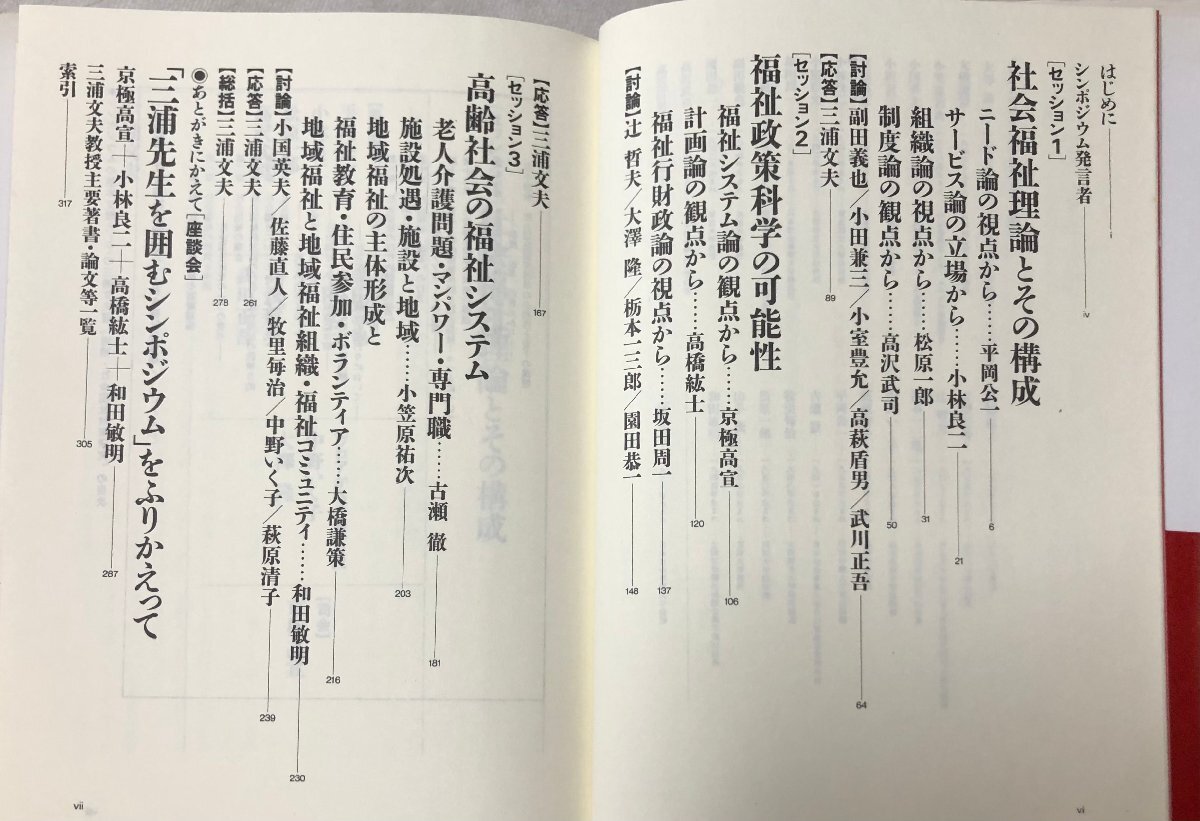 はじめに
シンポジウム発言者 iv
[セッション1]
社会福祉理論とその構成
ニード論の視点から……平岡公一 6
サービス論の立場から……小林良二 21
組織論の視点から……松原一郎 31
制度論の観点から……高沢武司 50
【討論】副田義也／小田兼三／小室豊允／高萩盾男／武川正吾 64
【応答】三浦文夫 89
[セッション2]
福祉政策科学の可能性
福祉システム論の観点から……京極高宣 106
計画論の観点から……高橋紘士 120
福祉行財政論の視点から……坂田周一 137
【討論】辻 哲夫／大澤 隆／栃本一三郎／園田恭一 148
vi
【応答】三浦文夫 167
[セッション3]
高齢社会の福祉システム
老人介護問題・マンパワー・専門職……古瀬 徹 181
施設処遇・施設と地域……小笠原祐次 203
地域福祉の主体形成と
福祉教育・住民参加・ボランティア……大橋謙策 216
地域福祉と地域福祉組織・福祉コミュニティ……和田敏明 230
【討論】小国英夫／佐藤直人／牧里毎治／中野いく子／萩原清子 239
【応答】三浦文夫 261
【総括】三浦文夫 278
●あとがきにかえて[座談会]
「三浦先生を囲むシンポジウム」をふりかえって
京極高宣＋小林良二＋高橋紘士＋和田敏明 287
三浦文夫教授主要著書・論文等一覧 305
索引 317
vii